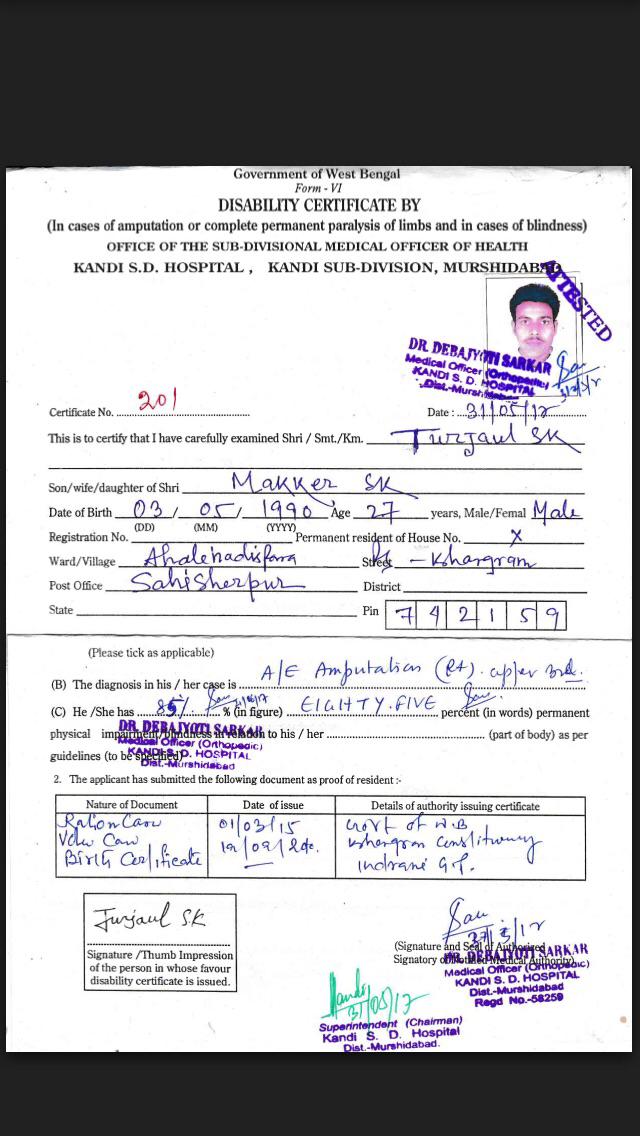 Government of West Bengal
Form - VI
DISABILITY CERTIFICATE BY
(In cases of amputation or complete permanent paralysis of limbs and in cases of blindness)
OFFICE OF THE SUB-DIVISIONAL MEDICAL OFFICER OF HEALTH
KANDI S.D. HOSPITAL , KANDI SUB-DIVISION, MURSHIDABAD
ATTESTED
DR. DEBAJYOTI SARKAR
Medical Officer (Orthopedic)
KANDI S. D. HOSPITAL
Dist.-Murshidabad
Certificate No. 201
Date : 31/05/17
This is to certify that I have carefully examined Shri / Smt./Km. Turjaul SK
Son/wife/daughter of Shri Makker SK
Date of Birth 03 / 05 / 1990 Age 27 years, Male/Femal Male
(DD) (MM) (YYYY)
Registration No. Permanent resident of House No. X
Ward/Village Street - Khargram
Post Office Sahisherpur District
State Pin 742159
(Please tick as applicable)
(B) The diagnosis in his / her case is A/E Amputation (Rt). upper
(C) He /She has 85% % (in figure) EIGHTY.FIVE percent (in words) permanent
physical impairment/blindness in relation to his / her (part of body) as per
guidelines (to be specified)
DR. DEBAJYOTI SARKAR
Medical Officer (Orthopedic)
KANDI S. D. HOSPITAL
Dist.-Murshidabad
2. The applicant has submitted the following document as proof of resident :-
Nature of Document Date of issue Details of authority issuing certificate
Ration Card 01/03/15 Govt of W.B
Khargram Constituency
Birth Certificate Indrani G.P.
Turjaul S.K
Signature /Thumb Impression
of the person in whose favour
disability certificate is issued.
(Signature and Seal of Authorised
Signatory of Notified Medical Authority)
DR. DEBAJYOTI SARKAR
Medical Officer (Orthopedic)
KANDI S. D. HOSPITAL
Dist.-Murshidabad
Regd No.-58259
31/05/17
Superintendent (Chairman)
Kandi S. D. Hospital
Dist.-Murshidabad.